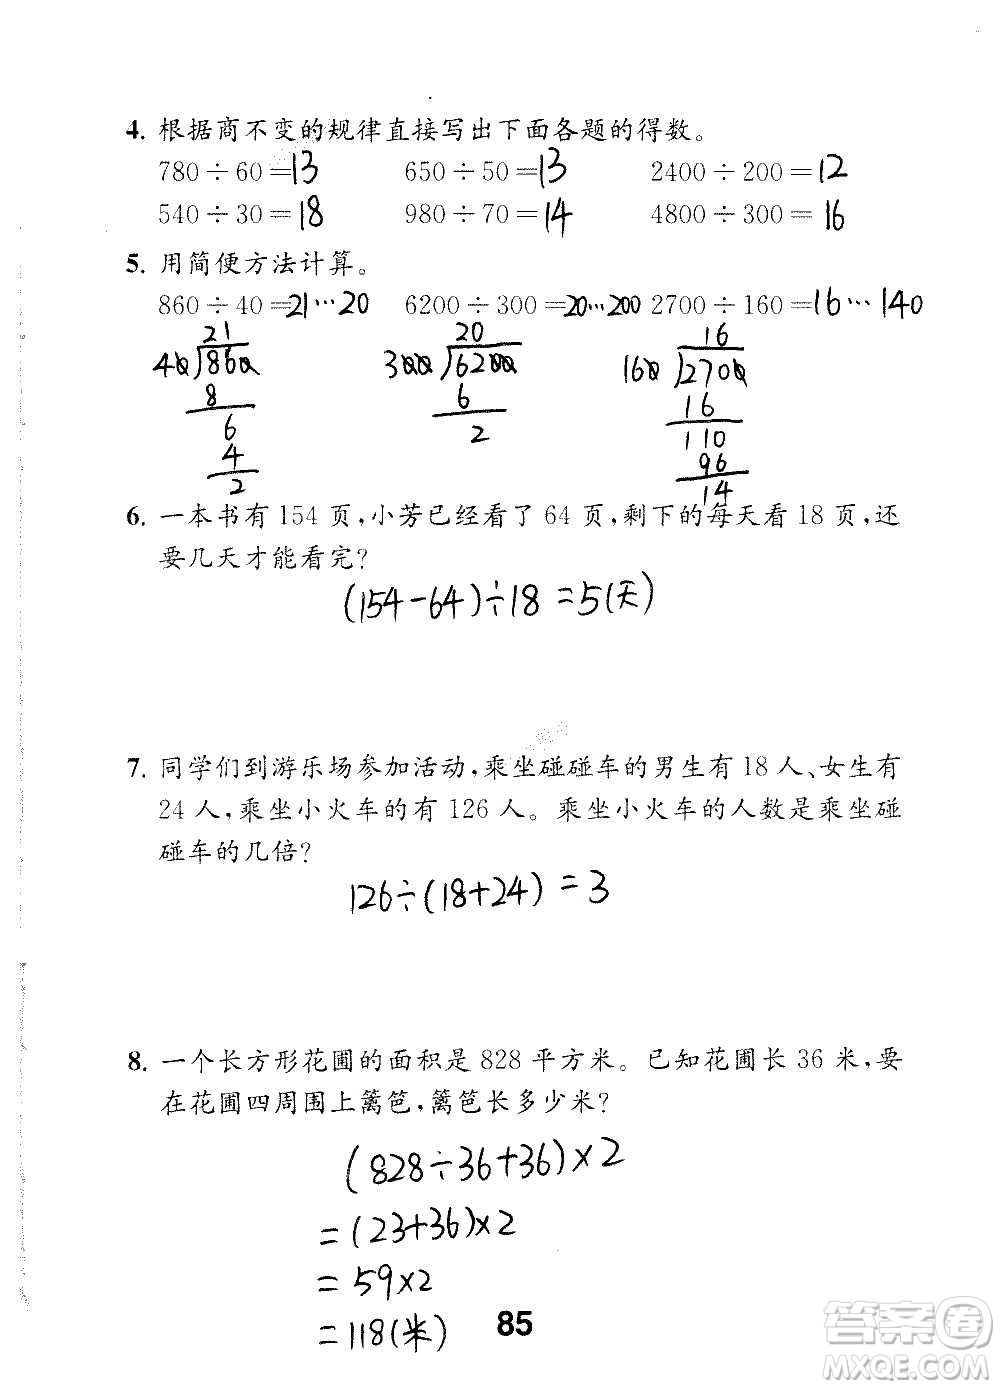 4. 根据商不变的规律直接写出下面各题的得数。
780÷60=13 650÷50=13 2400÷200=12
540÷30=18 980÷70=14 4800÷300=16
5. 用简便方法计算。
860÷40=21…20 6200÷300=20…200 2700÷160=16…140
21 20 16
40 860 300 6200 160 2700
8 6 16
6 2 110
4 96
2 14
6. 一本书有 154 页,小芳已经看了 64 页,剩下的每天看 18 页,还
要几天才能看完?
(154-64)÷18=5(天)
7. 同学们到游乐场参加活动,乘坐碰碰车的男生有 18 人、女生有
24 人,乘坐小火车的有 126 人。乘坐小火车的人数是乘坐
碰车的几倍?
126÷(18+24)=3
8. 一个长方形花圃的面积是 828 平方米。已知花圃长 36 米,要
在花圃四周围上篱笆,篱笆长多少米?
(828÷36+36)×2
=(23+36)×2
=59×2
=118(米)
85
答案圈
MXQE.COM